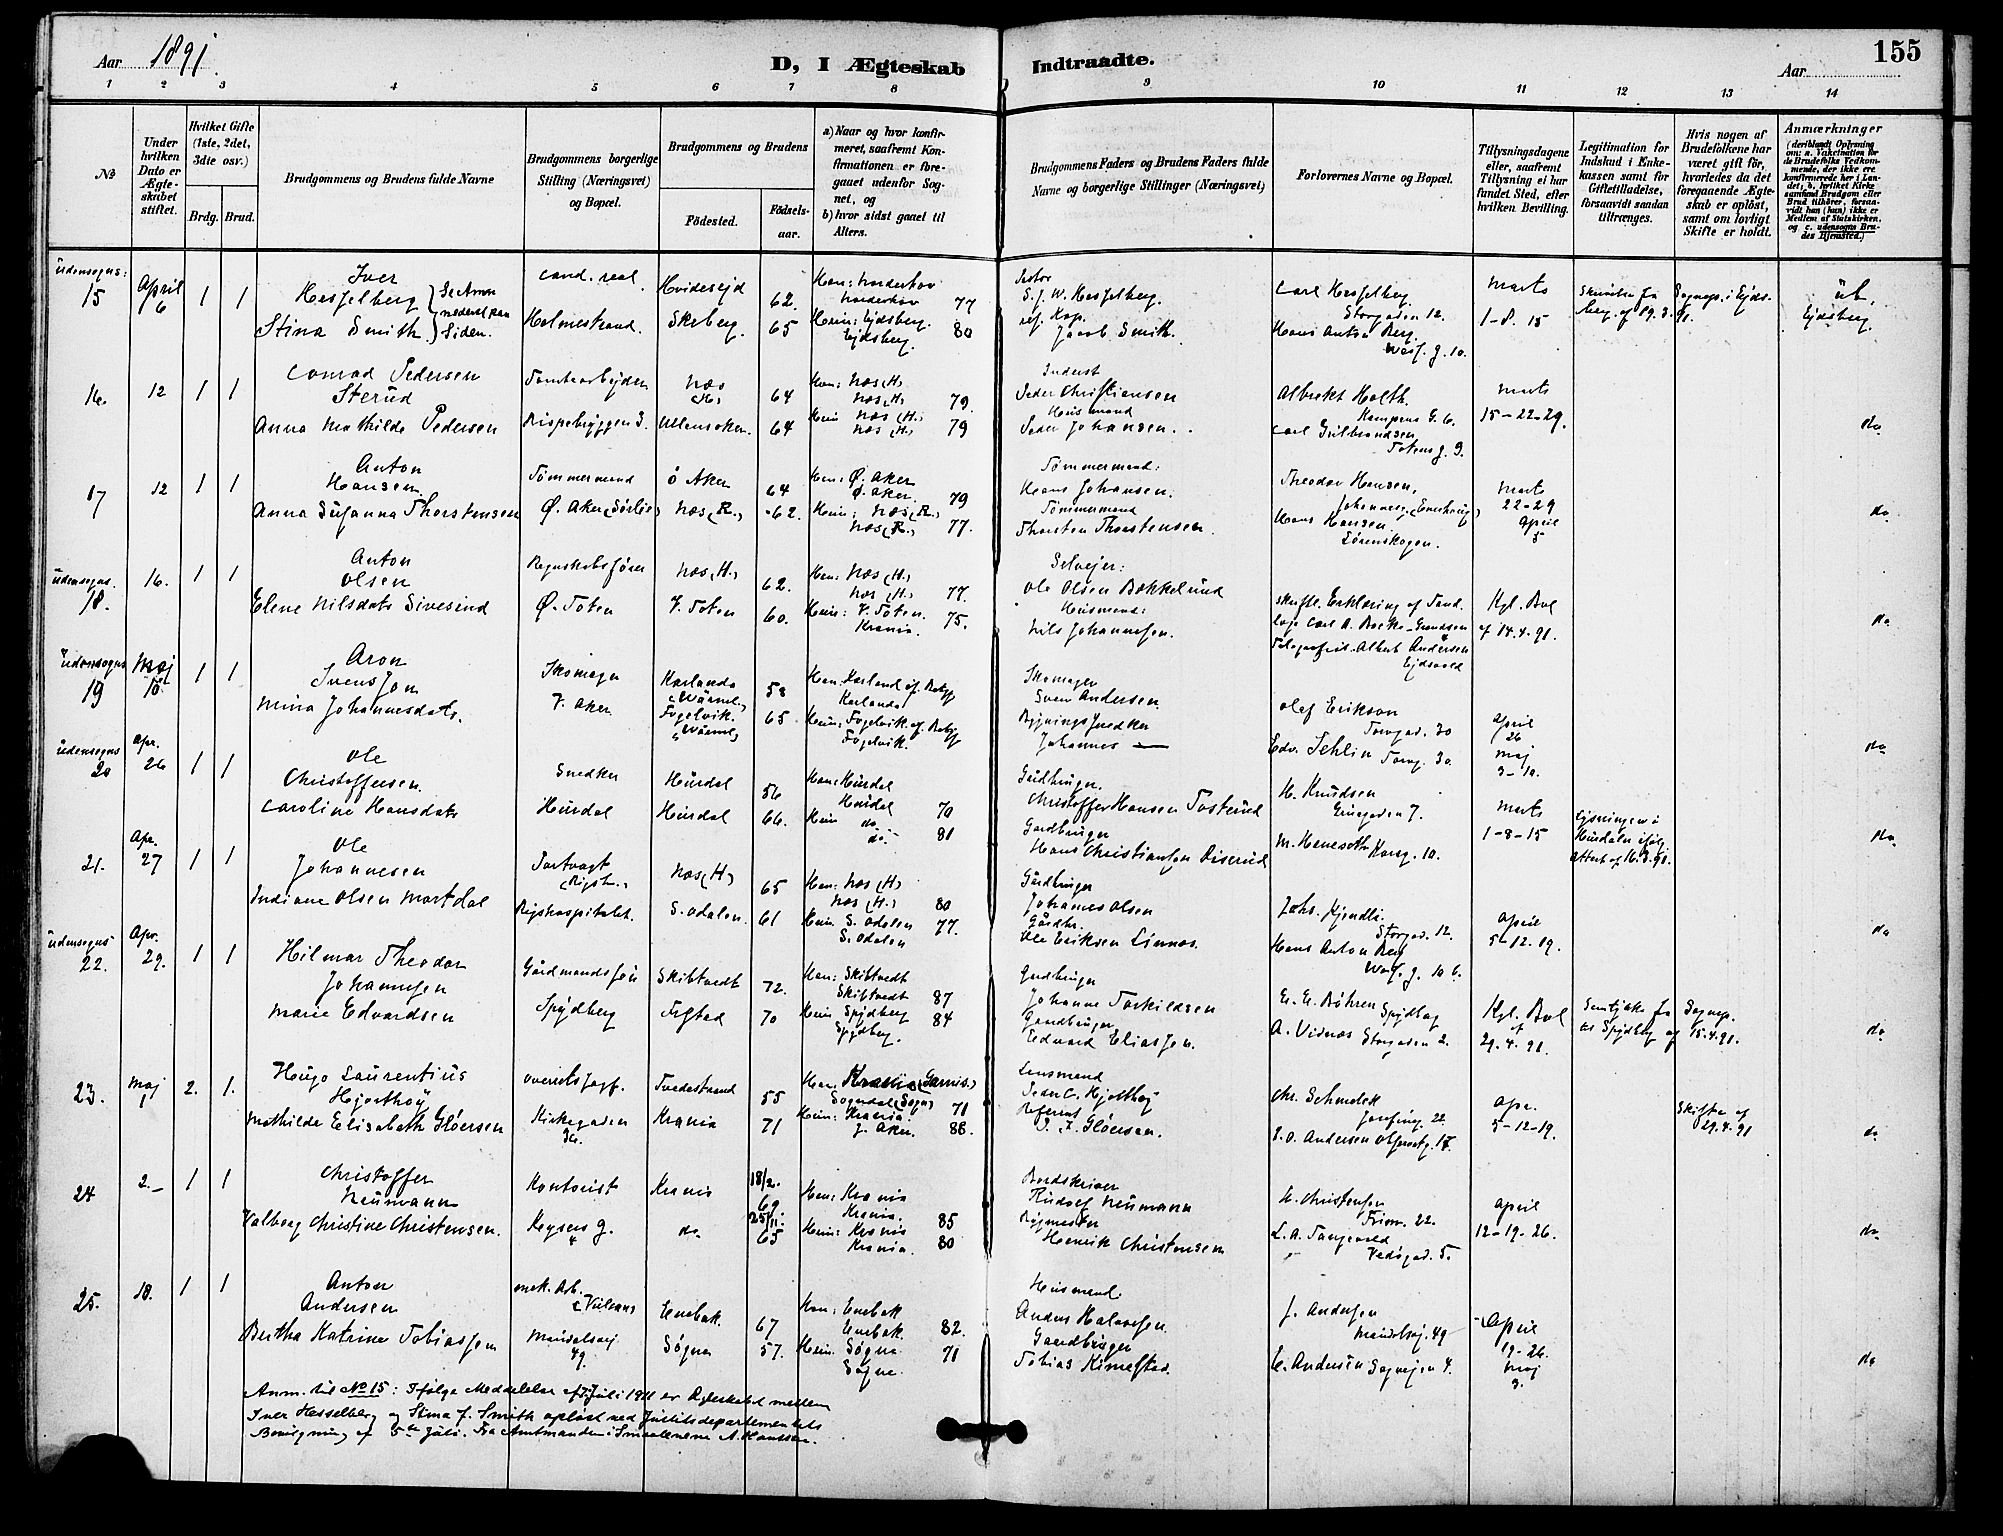 Aar 1891.
D, I Ægteskab Indtraadte.
Aar
155
1 2 3 4 5 6 7 8 9 10 11 12 13 14
No
Under hvilken Dato er Ægteskabet stiftet.
Hvilket Gifte (1ste, 2det, 3die osv.)
Brdg. Brud.
Brudgommens og Brudens fulde Navne
Brudgommens borgerlige Stilling (Næringsvei) og Bopæl.
Brudgommens og Brudens
Fødested.
Fødsels-aar.
a) Naar og hvor konfirmeret, saafremt Konfirmationen er foregaaet udenfor Sognet, og
b) hvor sidst gaaet til Alters.
Brudgommens Faders og Brudens Faders fulde Navne og borgerlige Stillinger (Næringsvei)
Forlovernes Navne og Bopæl.
Tillysningsdagene eller, saafremt Tillysning ei har fundet Sted, efter hvilken Bevilling.
Legitimation for Indskud i Enkekassen samt for Giftetilladelse, forsaavidt saadan tiltrænges.
Hvis nogen af Brudefolkene har været gift før, hvorledes da det foregaaende Ægteskab er opløst, samt om lovligt Skifte er holdt.
Anmærkninger
(deriblandt Oplysning om: a. Vakcination for de Brudefolks Vedkommende, der ikke ere konfirmerede her i Landet; b, hvilket Kirkesamfund Brudgom eller Brud tilhører, forsaavidt han (hun) ikke er Medlem af Statskirken, og c. udensogns Brudes Hjemsted.)
udensogns:
15 April 6 1 1
Iver Hesselberg
Stina Smith
Se Anm nederst paa Siden.
cand. real.
Holmestrand.
Hvidesejd 62.
Skiberg. 65
Han: Norderhov
Norderhov 77
Hun: Ejdsberg.
Ejdsberg. 80
S. J. W. Hesselberg.
res. Kap.
Jacob Smith.
Carl Hesselberg
Storgaden 12.
Hans Anton Berg
Wess. g. 10.
Marts
1-8. 15
Ejdsberg.
16. 12 1 1
Conrad Pedersen
Sterud
Anna Mathilde Pedersen
Tomtearbejder
Næs (H) 64
Ullensaker. 64
Han: Næs (H)
Næs (H) 79.
Hun Næs (H.)
Næs (H.) 79
Inderst
Peder Christiansen
Husmand
Peder Johansen.
Albrekt Holth.
Kampens G. 6.
Carl Gulbrandsen
Totens g. 9.
Marts
15-22-29.
do
17 12 1 1
Anton
Hansen
Anna Susanna Thorstensen
Tømmermand
Ø. Aker
Ø Aker 64
Næs (R.) 62.
Han: Ø. Aker
Ø. Aker. 79
Hun: Næs (R.)
Næs (R.) 77.
Tømmermand:
Hans Johansen.
Tømmermand
Thorsten Thorstensen.
Theodor Hansen,
Hans Hansen.
Lørenskogen.
Marts
22-29
April
5
do.
udensogns.
18. 16. 1 1
Anton
Olsen
Elene Nilsdatr Sivesind
Regnskabsfører
Ø. Toten
Næs (H.) 62.
V. Toten 60.
Han: Næs (H.)
Næs (H.) 77.
Hun: V. Toten.
Krania. 75.
Selvejer:
Ole Olsen Bakkelund
Husmand:
Nils Johannesen.
skriftl. Erklæring af Tand-
læge Carl A. Bocke-Grøndsen
Telegrafist. Albert Andersen
Ejdsvold
Kgl. Bvl
af 14.4.91.
do
udensogns
19 Maj 10. 1 1
Aron
Svensson
Mina Johannesdatr.
Skomager
V. Aker.
Karlanda 58
(Wärml.)
Fogelvik. 65
(Wärml.)
Karlanda
Fogelvik.
Skomager
Sven Andersen
Bygningssnedker
Johannes —
Olef Erikson
Torvgad. 30
Edv. Sehlin Torvg. 30.
April
26
Maj
3-10.
do
udensogns
20 Apr. 26 1 1
Ole
Christoffersen.
Caroline Hansdatr
Snedker
Hurdal
Hurdal 56
Hurdal 66.
Han: Hurdal
Hurdal 70
Hun do.
do. 81
Gårdbruger.
Christoffer Hansen Tosterud
Gårdbruger
Hans Christiansen Diserud
H. Knudsen
M. Henesoth Korsg. 10.
Marts
1-8-15
do
21. Apr. 27 1 1
Ole
Johannesen
Indiane Olsen Mortdal
Portvagt
(Rigsh.)
Rigshospitalet.
Næs (H) 65
S. Odalen. 61
Han: Næs (H)
Næs (H.) 80
Hun S. Odalen
S. Odalen 77.
Gårdbruger
Johannes Olsen
Gårdbr.
Ole Eriksen Linnæs.
Johs. Kjendli.
Storgad. 12.
Hans Anton Berg
Wess. g. 10 b.
April
5-12-19.
do
udensogns
22. Apr. 29. 1 1
Hilmar Theodor
Johannesen
Marie Edvardsen
Gårdmandssøn
Spydberg
Skibtvedt 72.
70
Han: Skibtvedt
Skibtvedt 87
Hun Spydberg 84
Spydberg.
Gårdbruger
Johanne Torkildsen
Gaardbruger
Edvard Eliassen.
E. E. Bøhren
Spydberg
A. Vidnæs Storgaden 2.
Kgl. Bvl
af
29.4.91.
Samtykke fra Sognep.
til Spydberg af 15.4.91.
do
23. Maj 1 2. 1.
Hugo Laurentius
Hjorthøy
Mathilde Elisabeth Gløersen
Overretssagf.
Kirkegaden
Tvedestrand 55
Krania 71
Han: Krania (Garnis.)
Sogndal (Sogn) 71
Hun: Krania
V. Aker. 88.
Lensmand
Peder C. Hjorthøy
Referent
J. F. Gløersen.
Chr. Schmelck
Josefing. 22.
S. O. Andersen Olfsestg. 17.
Apr.
5-12-19.
Skifte af
29.4.91
do
24 2.- 1 1
Christoffer
Neumann
Valborg Christine Christensen.
Kontorist
Keysers g.
4
Krania 18/2. 69
do 25/11. 65
Han: Krania
Krania. 85
Hun: Krania
Krania. 80
Bordskriver
Rudolf Neumann
Henrik Christensen
E. Christensen
22.
L. A. Tangevald
5.
April
12-19-26.
do
25. 10. 1 1
Anton
Andersen
Bertha Katrine Tobiassen
mek. Arb.
(Vulcans
Maridalsvej
49.
Enebak 67
Søgne 57.
Han: Enebak
Enebak 82.
Hun. Søgne
Søgne. 71
Husmand
Anders Halvorsen.
Gaardbruger
Tobias Kimestad.
J. Andersen
Maridalsvej. 49
E. Andersen Sagvejen 4.
April
19-26.
Maj
3.
do
Anm. til No 15: Ifølge Meddelelse af Juli 1911 er Ægteskabet mellem
Iver Hesselberg og Stina f. Smith opløst ved Justitsdepartementets
Bevilgning af 5te Juli. Fra Amtmanden i Smaalenene A. Hanssen.